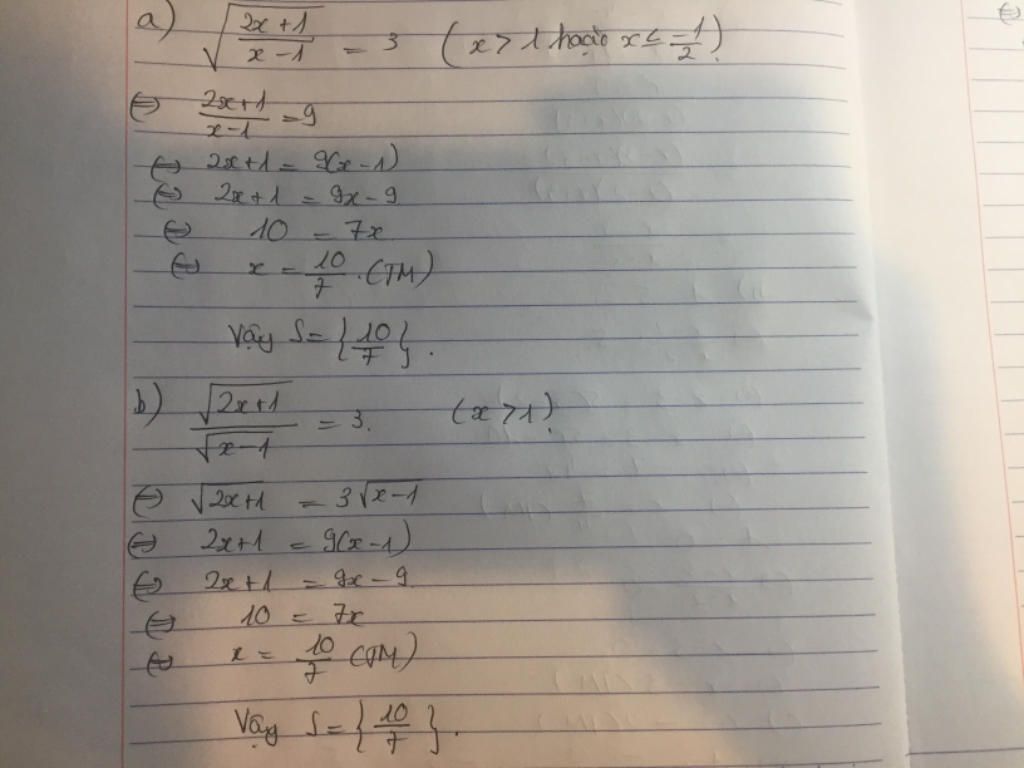 a) √((2x+1)/(x-1)) = 3 (x > 1 hoặc x ≤ -1/2)
⇔ (2x+1)/(x-1) = 9
⇔ 2x+1 = 9(x-1)
⇔ 2x+1 = 9x-9
⇔ 10 = 7x
⇔ x = 10/7. (TM)
Vậy S = {10/7}.
b) √(2x+1)/√(x-1) = 3. (x > 1)
⇔ √(2x+1) = 3√(x-1)
⇔ 2x+1 = 9(x-1)
⇔ 2x+1 = 9x-9
⇔ 10 = 7x
⇔ x = 10/7 (TM)
Vậy S = {10/7}.